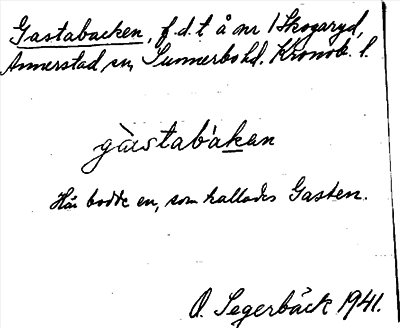 Gastabacken, f.d.t. å nr 1 Skogaryd,
Annerstad sn, Sunnerbo hd. Kronob. l.
gàstabàkan
Här bodde en, som kallades Gasten.
O. Segerbäck 1941.